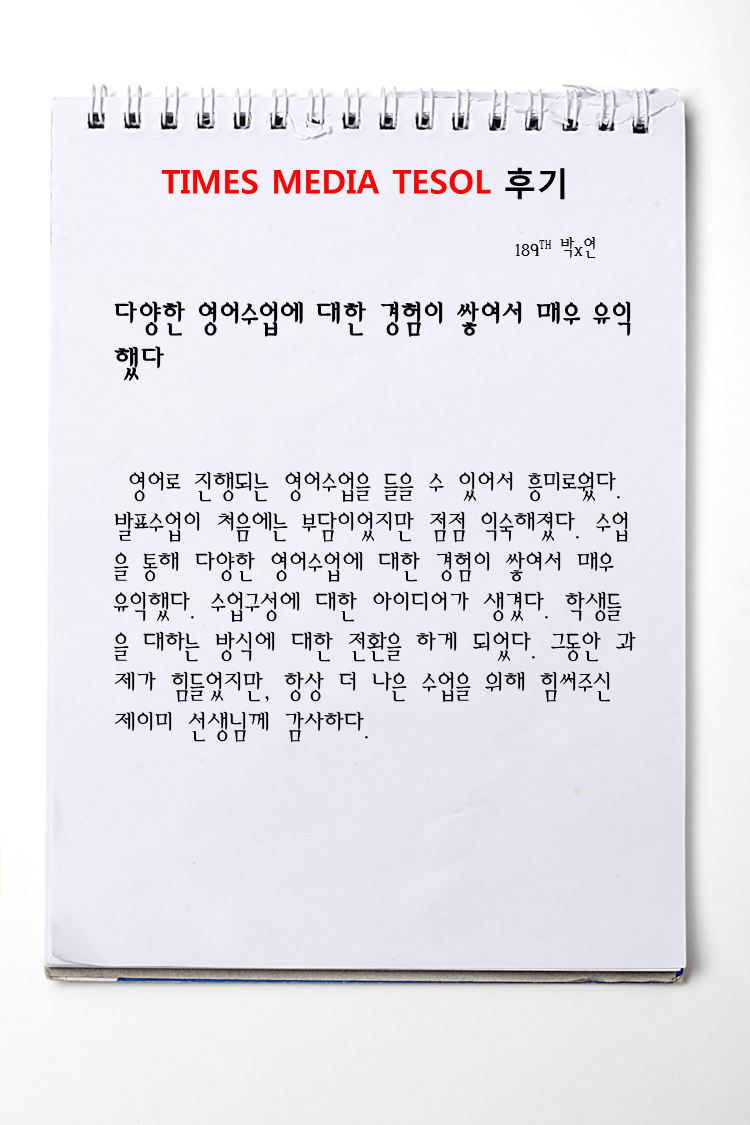 TIMES MEDIA TESOL 후기
189TH 박x연
다양한 영어수업에 대한 경험이 쌓여서 매우 유익
했다
영어로 진행되는 영어수업을 들을 수 있어서 흥미로웠다.
발표수업이 처음에는 부담이었지만 점점 익숙해졌다. 수업
을 통해 다양한 영어수업에 대한 경험이 쌓여서 매우
유익했다. 수업구성에 대한 아이디어가 생겼다. 학생들
을 대하는 방식에 대한 전환을 하게 되었다. 그동안 과
제가 힘들었지만, 항상 더 나은 수업을 위해 힘써주신
제이미 선생님께 감사하다.